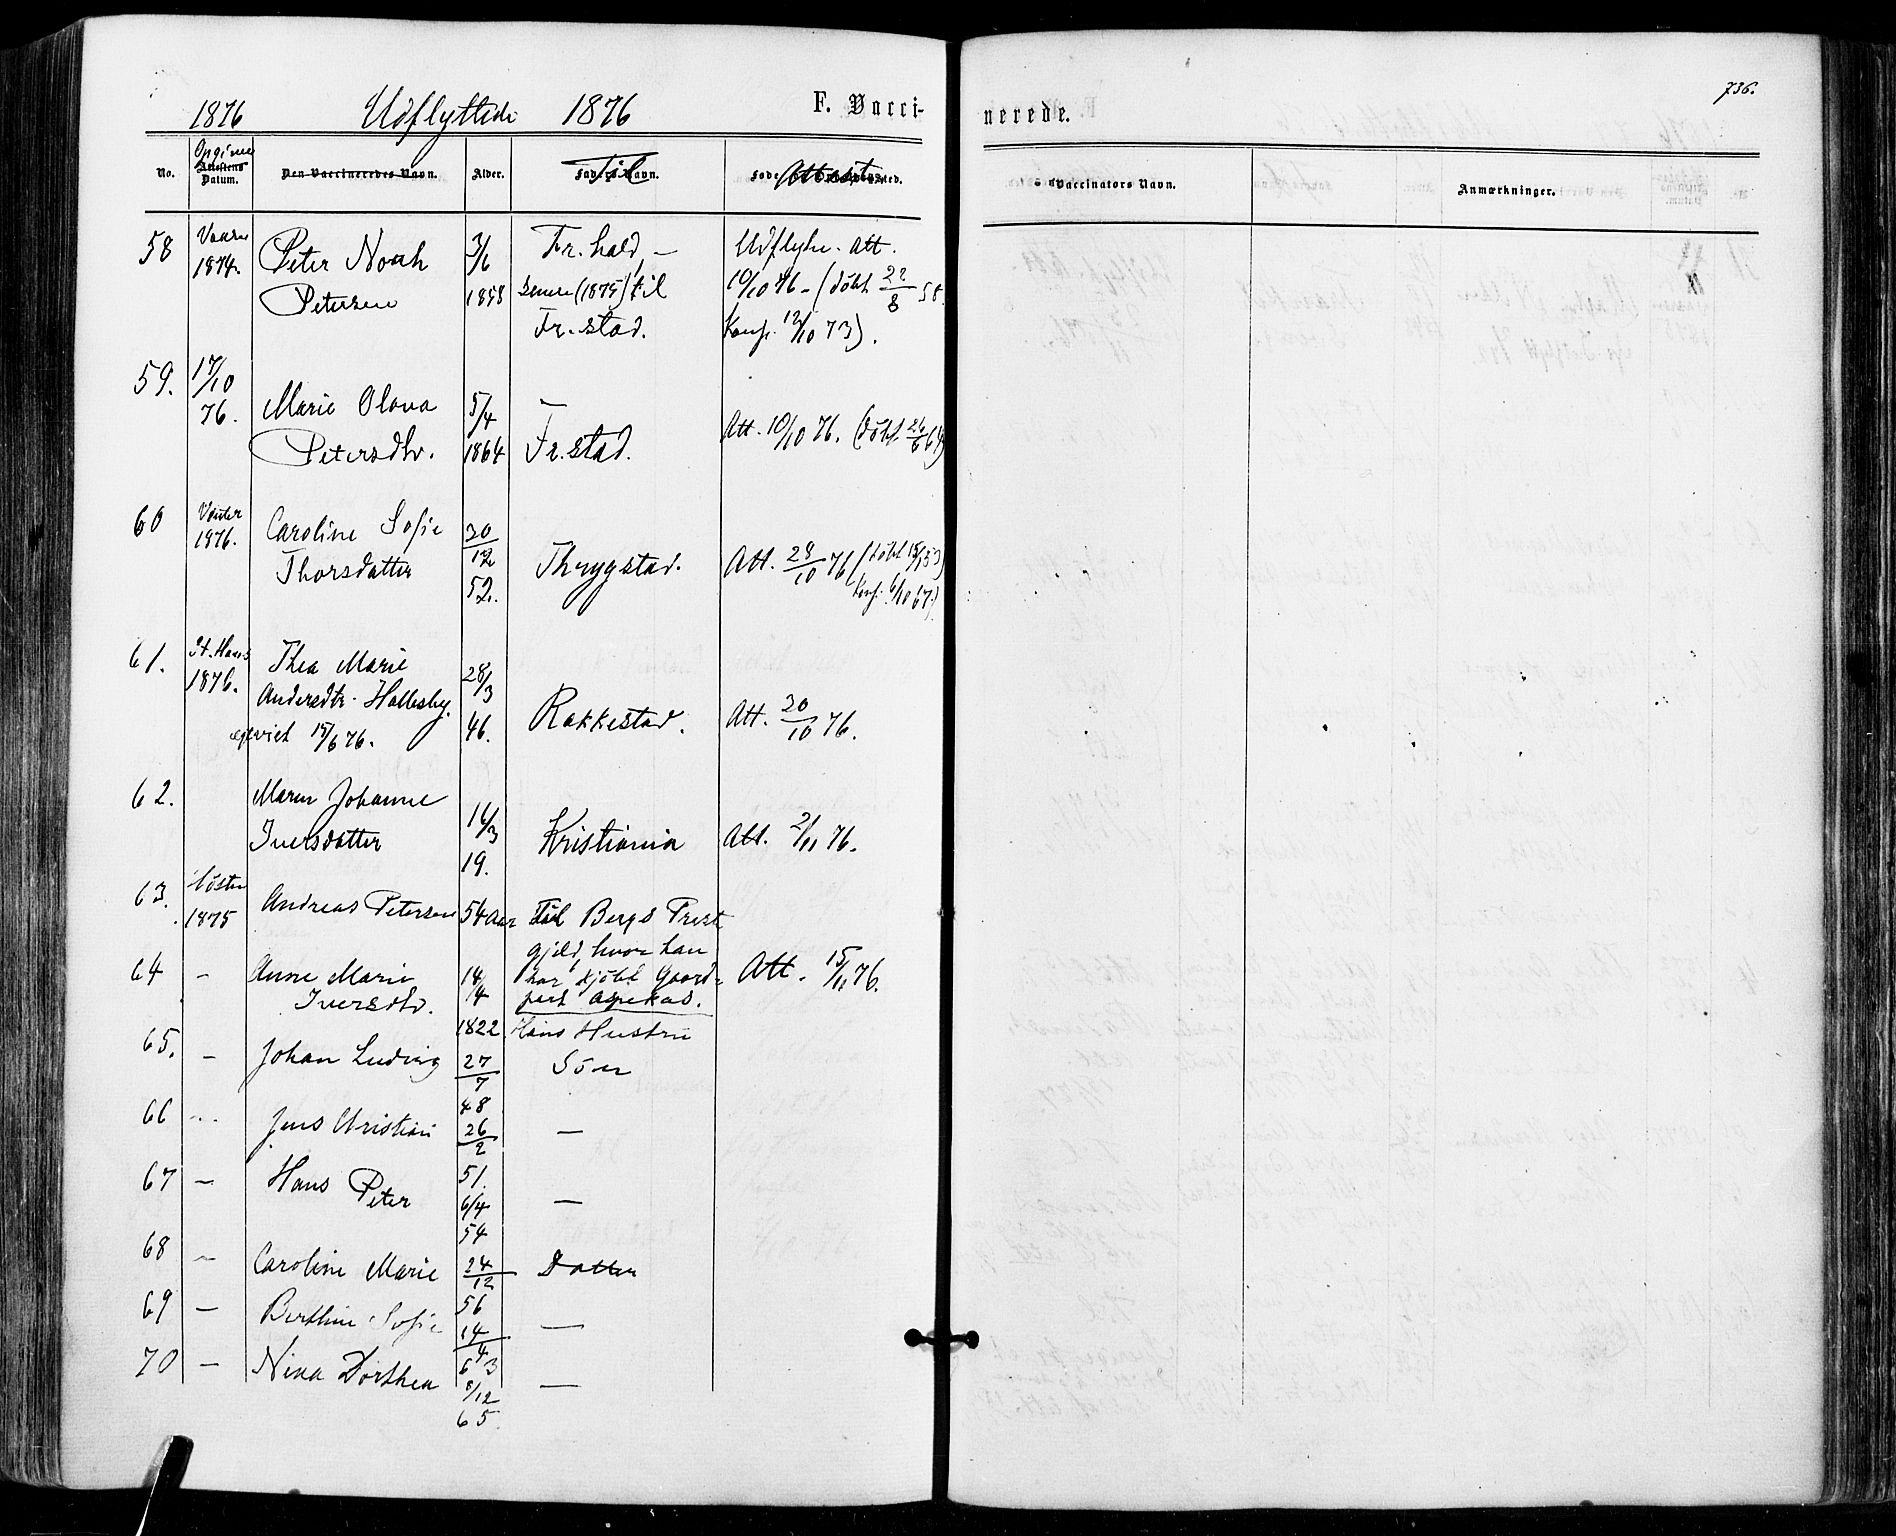 736.
1876 Udflyttede 1876 F. Vacci-
nerede.
No. Attestens Datum. Den Vaccineredes Navn. Alder. Til Attest
Vaccinators Navn. Anmærkninger.
58 1874. Peter Noah Petersen 3/6 1858 Fr.hald, —
Senere (1875) til
Fr.stad.
Udflytn. Att.
10/10 76 – (döbt 22/8 58.
Konf. 12/10 73).
59. 17/10 76. Marie Olava Petersdtr. 5/4 1864 — Fr.stad. Att. 10/10 76. (döbt 26/6 64)
60 Vinter 1876. Caroline Sofie Thorsdatter 20/12 52. Thrygstad. Att. 28/10 76 (döbt
Konf. 6/10 67.)
61. St. Hans 1876. Thea Marie
Andersdtr. Hallesby.
egteviet 15/6 76.
28/3 46. Rakkestad. Att. 20/10 76.
62. Maren Johanne Iversdatter 16/3 19. Kristiania Att. 2/11 76.
63. Hösten 1875 Andreas Petersen 54 Aar Til Bergs Prest
gjeld, hvor han
har kjöbt Gaard-
part Aspekas.
64 – Anne Marie Iversdtr. 14/4 1822. Hans Hustru
Att. 15/11 76.
65. – Johan Ludvig 27/7 48 Sön
66 – Jens Kristian 26/2 51. —
67 – Hans Peter 6/4 54 —
68 – Caroline Marie 24/12 56 Datter
69 – Berthine Sofie 14/4 63 —
70 – Nina Dorthea 8/12 65. —